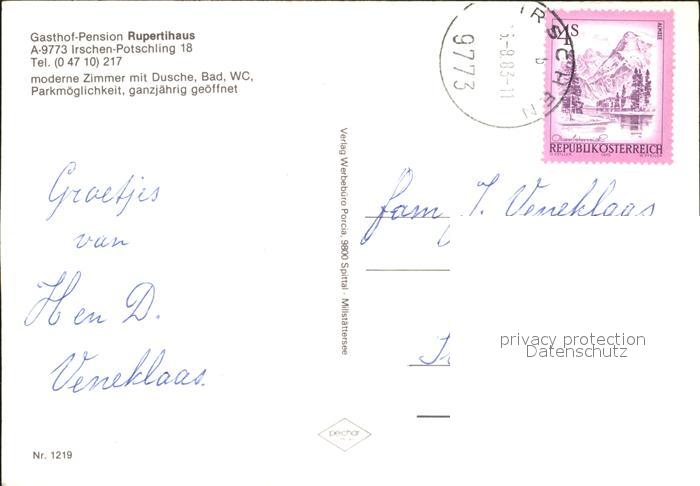 Gasthof-Pension Rupertihaus
A-9773 Irschen-Potschling 18
Tel. (0 47 10) 217
moderne Zimmer mit Dusche, Bad, WC,
Parkmöglichkeit, ganzjährig geöffnet
Groetjes
van
H en D.
Veneklaas.
Nr. 1219
Verlag Werbebüro Porcia, 9800 Spittal - Millstättersee
pechar
IRSCHEN
9773
b
-8.83-11
4S
ALMSEE
REPUBLIK ÖSTERREICH
fam J. Veneklaas
privacy protection
Datenschutz